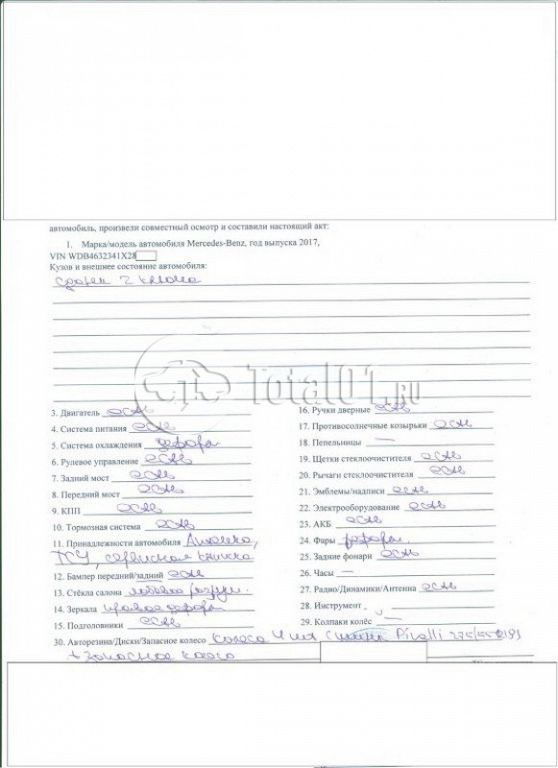 автомобиль, произвели совместный осмотр и составили настоящий акт:
1. Марка/модель автомобиля Mercedes-Benz, год выпуска 2017,
VIN WDB4632341X28
Кузов и внешнее состояние автомобиля:
2 ключа
Total01.ru
3. Двигатель есть
4. Система питания есть
5. Система охлаждения деформ
6. Рулевое управление есть
7. Задний мост есть
8. Передний мост есть
9. КПП есть
10. Тормозная система есть
11. Принадлежности автомобиля Аптечка,
ПСУ, сервисная книжка
12. Бампер передний/задний есть
13. Стёкла салона лобовое
14. Зеркала правое деформ
15. Подголовники есть
16. Ручки дверные есть
17. Противосолнечные козырьки есть
18. Пепельницы —
19. Щетки стеклоочистителя есть
20. Рычаги стеклоочистителя есть
21. Эмблемы/надписи есть
22. Электрооборудование есть
23. АКБ есть
24. Фары деформ.
25. Задние фонари есть
26. Часы —
27. Радио/Динамики/Антенна есть
28. Инструмент
29. Колпаки колёс —
30. Авторезина/Диски/Запасное колесо колеса 4 шт Pirelli
+ запасное колесо